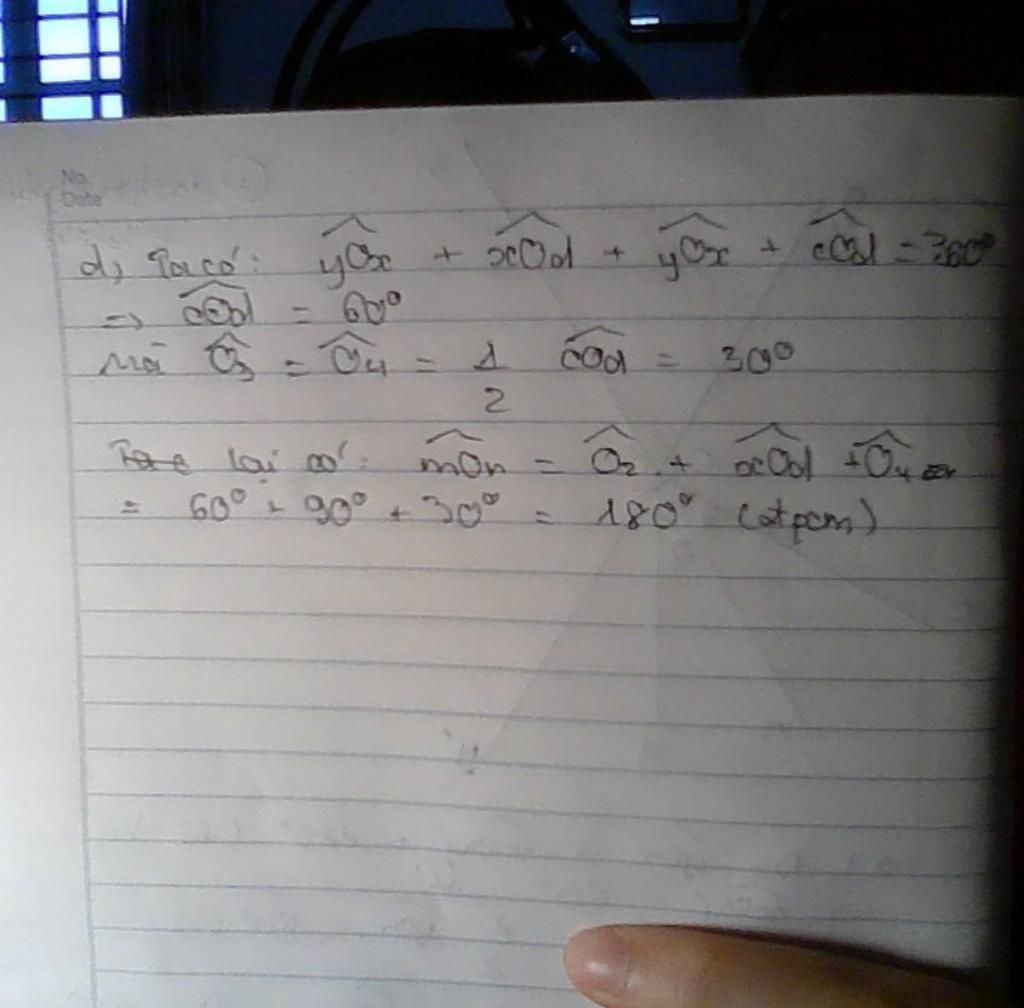 No.
Date
d, Ta có: yOx + xOd + yOx + cOd = 360°
=> cOd = 60°
Mà O3 = O4 = 1/2 cOd = 30°
lại có: mOn = O2 + xOd + O4
= 60° + 90° + 30° = 180° (đpcm)